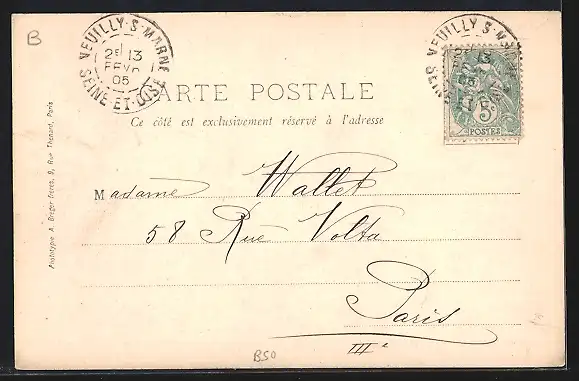 B
NEUILLY-S-MARNE
2E 13
FEVR
05
SEINE-ET-OISE
NEUILLY-S-MARNE
13
SEINE
5
POSTES
CARTE POSTALE
Ce côté est exclusivement réservé à l'adresse
Madame Wallet
58 Rue Volta
Paris
IIIe
B50
Phototypie A. Breger frères, 9, Rue Thénard, Paris